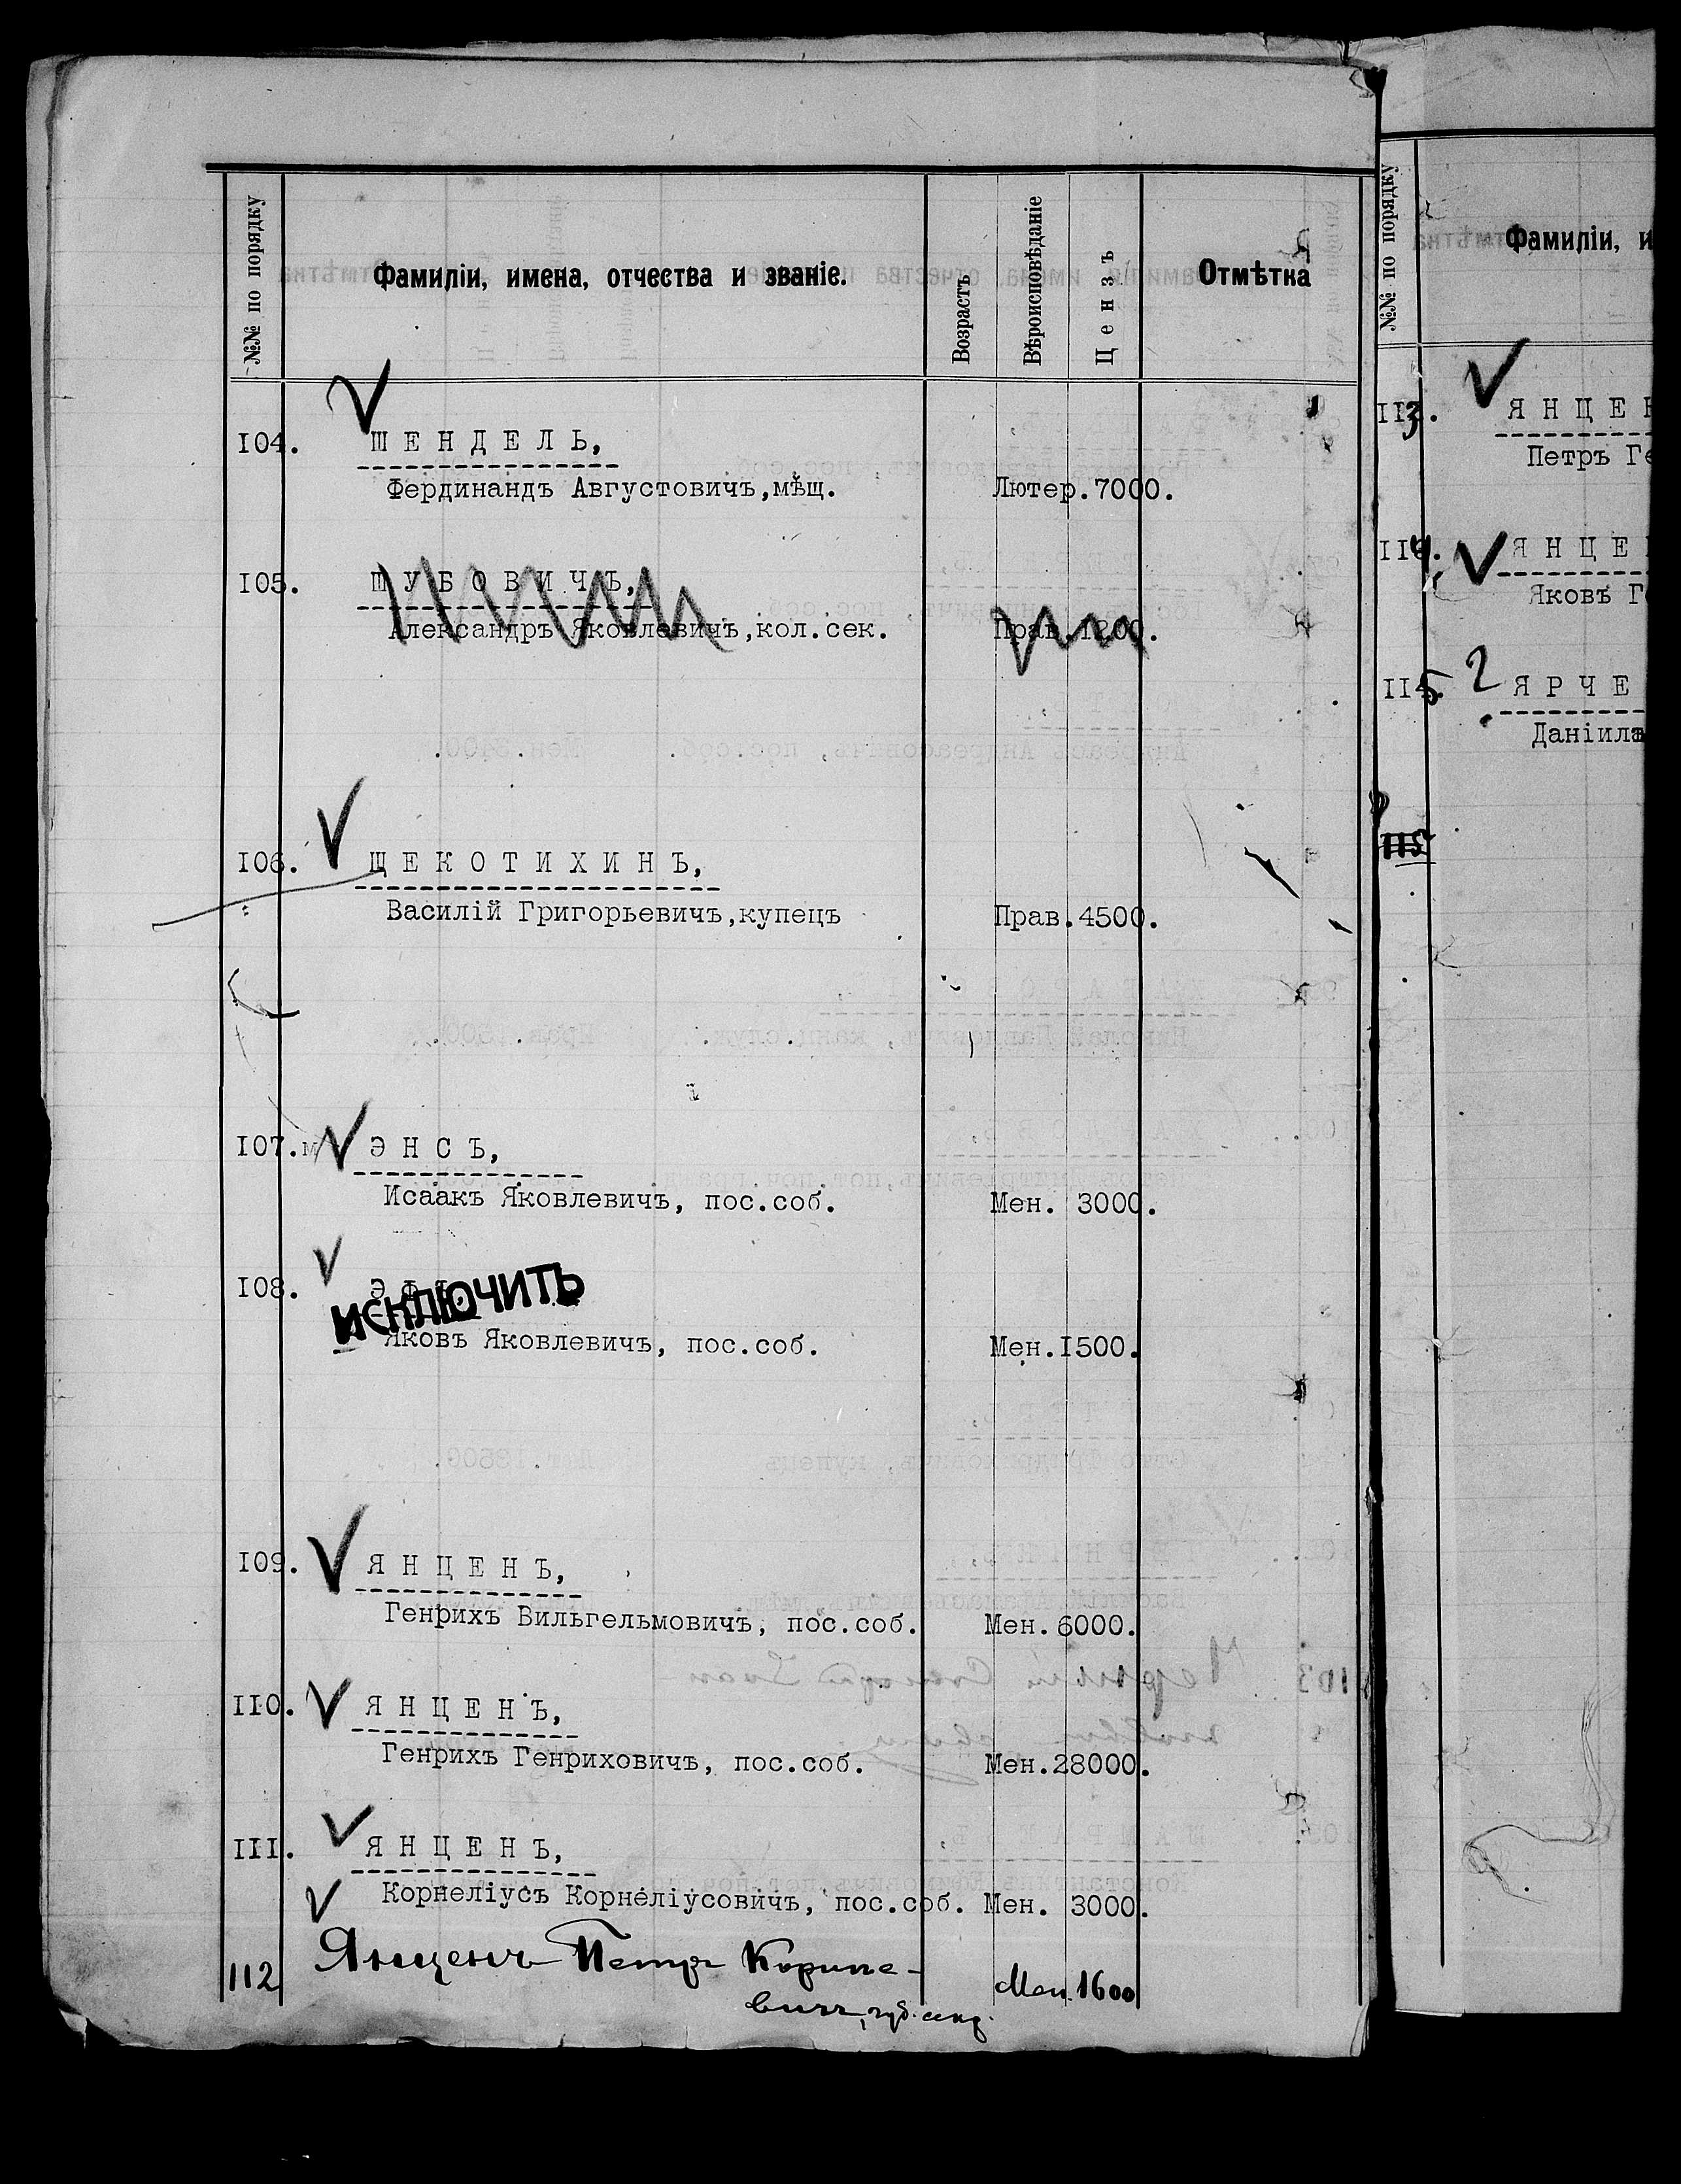 №№ по порядку
Фамиліи, имена, отчества и званіе.
Возрастъ
Вѣроисповѣданіе
Цензъ
Отмѣтка
104. ШЕНДЕЛЬ,
Фердинандъ Августовичъ,мѣщ. Лютер.7000.
105. ШУБОВИЧЪ,
Александръ Яковлевичъ,кол.сек. Прав.1200.
106. ЩЕКОТИХИНЪ,
Василій Григорьевичъ,купецъ Прав.4500.
107. ЭНСЪ,
Исаакъ Яковлевичъ, пос.соб. Мен. 3000.
108.
ИСКЛЮЧИТЬ
Яковъ Яковлевичъ, пос.соб. Мен.1500.
109. ЯНЦЕНЪ,
Генрихъ Вильгельмовичъ, пос.соб. Мен.6000.
110. ЯНЦЕНЪ,
Генрихъ Генриховичъ, пос.соб. Мен.28000.
111. ЯНЦЕНЪ,
Корнеліусъ Корнеліусовичъ, пос.соб. Мен. 3000.
112 Янценъ Петръ Корніе- Мен.1600
вичъ, губ.секр.
№№ по порядку
Фамиліи, и
113. ЯНЦЕН
Петръ Ге
114. ЯНЦЕ
Яковъ Г
115 ? ЯРЧЕ
Даніилъ
115